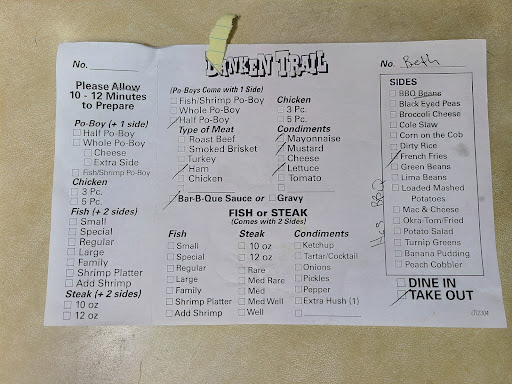 DANKEN TRAIL
No.
Please Allow
10 - 12 Minutes
to Prepare
Po-Boy (+ 1 side)
Half Po-Boy
Whole Po-Boy
Cheese
Extra Side
Fish/Shrimp Po-Boy
Chicken
3 Pc.
5 Pc.
Fish (+ 2 sides)
Small
Special
Regular
Large
Family
Shrimp Platter
Add Shrimp
Steak (+ 2 sides)
10 oz
12 oz
(Po-Boys Come with 1 Side)
Fish/Shrimp Po-Boy
Whole Po-Boy
Half Po-Boy
Type of Meat
Roast Beef
Smoked Brisket
Turkey
Ham
Chicken
Chicken
3 Pc.
5 Pc.
Condiments
Mayonnaise
Mustard
Cheese
Lettuce
Tomato
Bar-B-Que Sauce or Gravy
FISH or STEAK
(Comes with 2 Sides)
Fish
Small
Special
Regular
Large
Family
Shrimp Platter
Add Shrimp
Steak
10 oz
12 oz
Rare
Med Rare
Med
Med Well
Well
Condiments
Ketchup
Tartar/Cocktail
Onions
Pickles
Pepper
Extra Hush (1)
No. Beth
SIDES
BBQ Beans
Black Eyed Peas
Broccoli Cheese
Cole Slaw
Corn on the Cob
Dirty Rice
French Fries
Green Beans
Lima Beans
Loaded Mashed
Potatoes
Mac & Cheese
Okra-Tom/Fried
Potato Salad
Turnip Greens
Banana Pudding
Peach Cobbler
BBQ
DINE IN
TAKE OUT